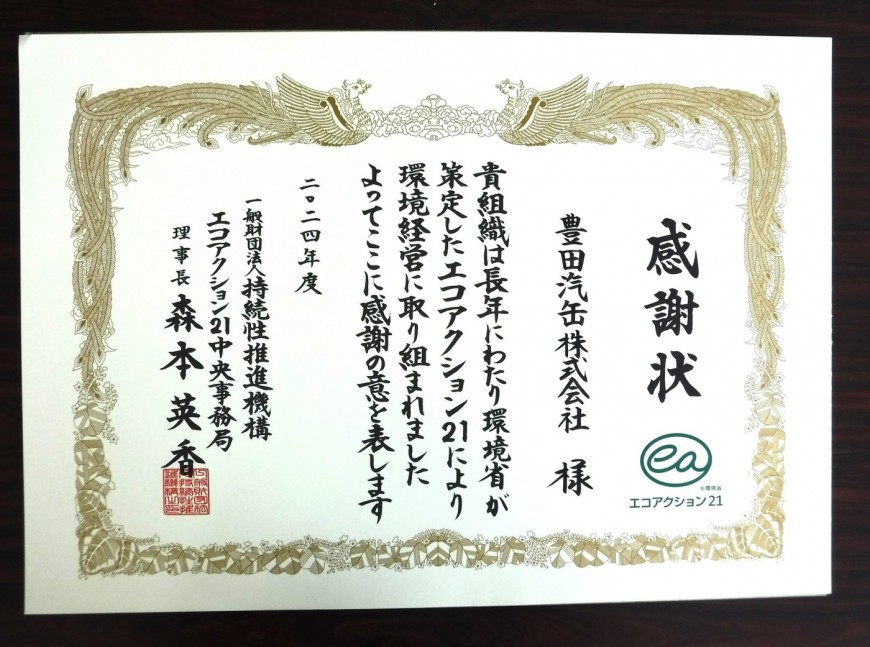 感謝状
ea
©環境省
エコアクション21
豊田汽缶株式会社 様
貴組織は長年にわたり環境省が
策定したエコアクション21により
環境経営に取り組まれました
よってここに感謝の意を表します
二〇二四年度
一般財団法人持続性推進機構
エコアクション21中央事務局
理事長 森本英香